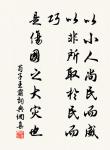 以小人尚民而威
以非所取於民而
巧
是傷國之大灾也
荀子王霸詞典網集